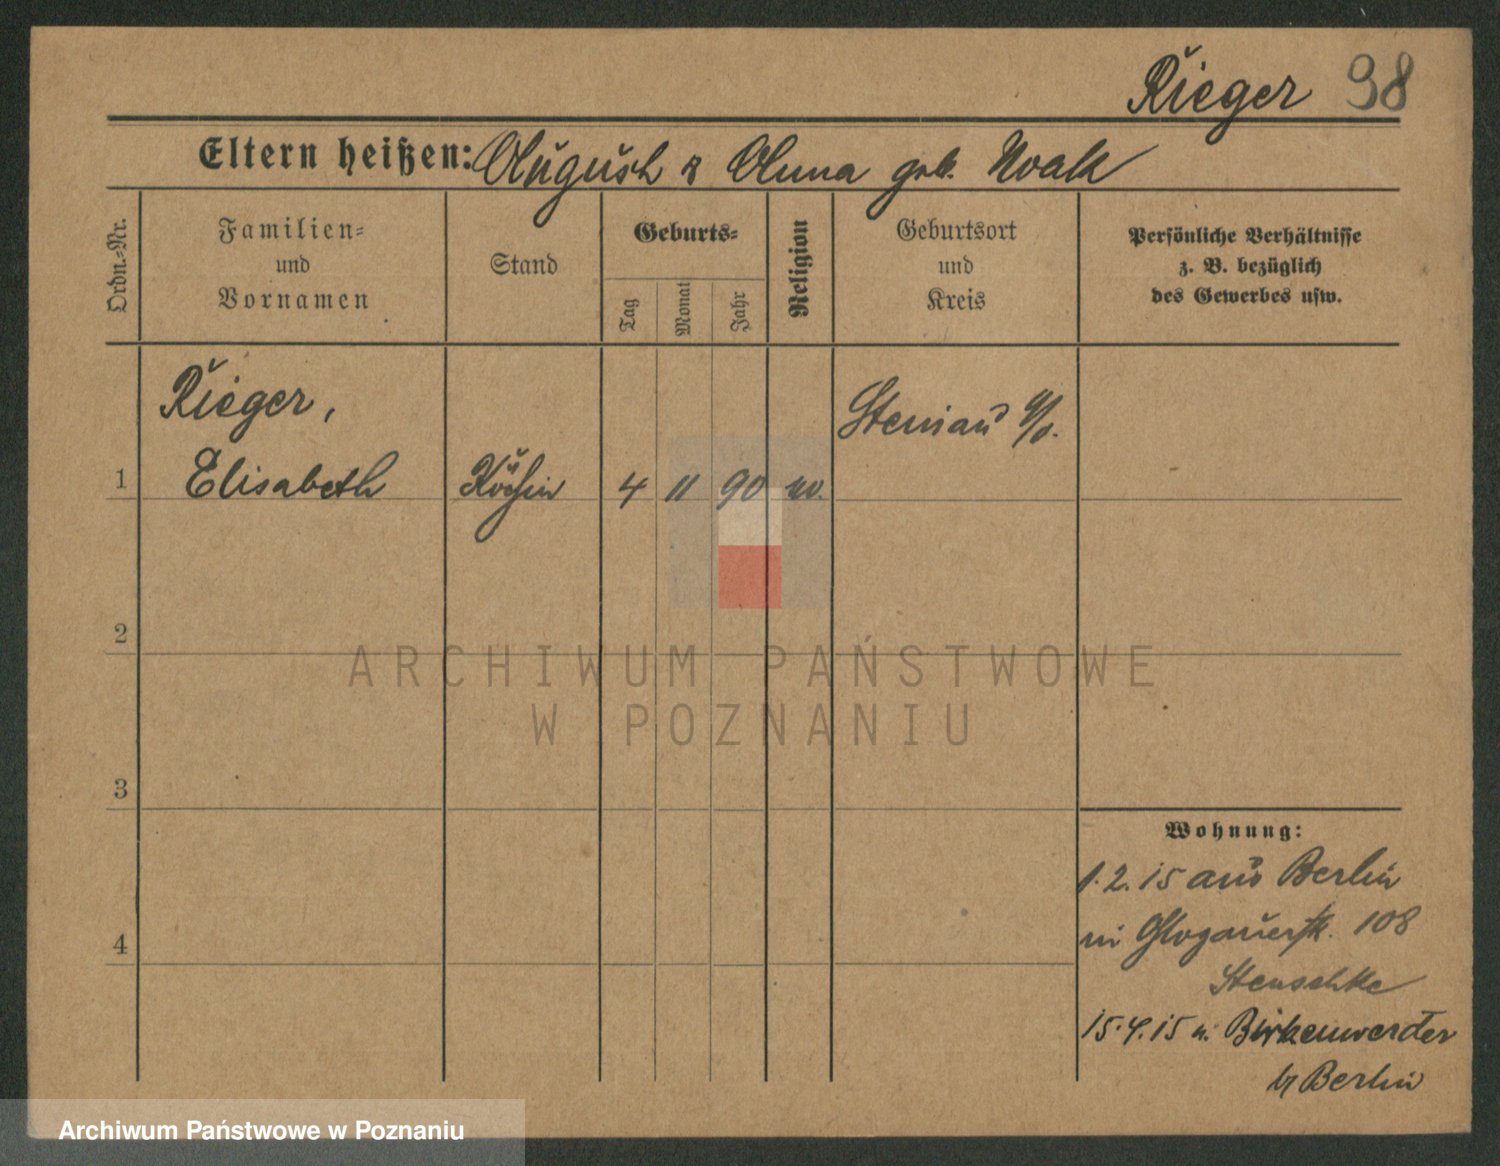 Rieger 98
Eltern heißen: August & Anna geb. Noak
Ordn.-Nr.
Familien-
und
Vornamen
Stand
Geburts-
Tag
Monat
Jahr
Religion
Geburtsort
und
Kreis
Persönliche Verhältnisse
z. B. bezüglich
des Gewerbes usw.
Rieger,
Steinau a/o.
1 Elisabeth Köchin 4 11 90
2
ARCHIWUM PAŃSTWOWE
W POZNANIU
3
Wohnung:
1.2.15 aus Berlin
in Glogauerstr. 108
4
Stenschke
15.4.15 n. Birkenwerder
b/ Berlin
Archiwum Państwowe w Poznaniu